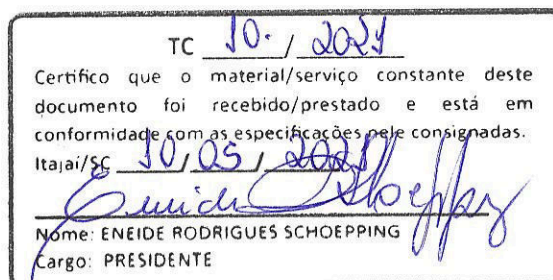 TC 10. / 2021
Certifico que o material/serviço constante deste
documento foi recebido/prestado e está em
conformidade com as especificações nele consignadas.
Itajaí/SC 10 / 05 / 2021
Eneide Schoepping
Nome: ENEIDE RODRIGUES SCHOEPPING
Cargo: PRESIDENTE